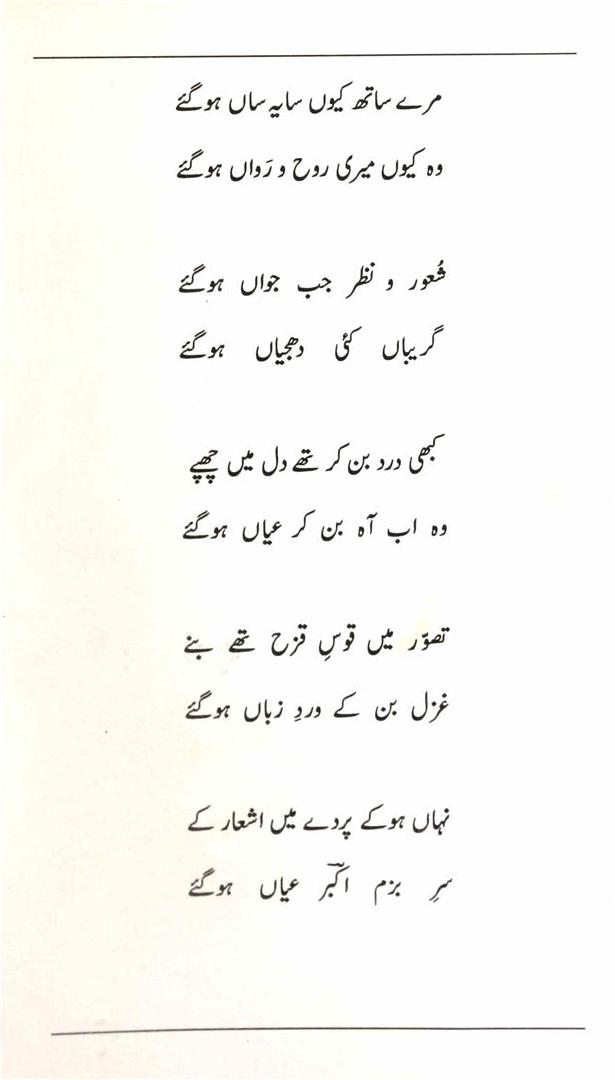 مرے ساتھ کیوں سایہ ساں ہوگئے
وہ کیوں میری روح و رَواں ہوگئے
شُعور و نظر جب جواں ہوگئے
گریباں کئی دھجیاں ہوگئے
کبھی درد بن کر تھے دل میں چھپے
وہ اب آہ بن کر عیاں ہوگئے
تصوّر میں قوسِ قزح تھے بنے
غزل بن کے وردِ زباں ہوگئے
نہاں ہوکے پردے میں اشعار کے
سرِ بزم اکبؔر عیاں ہوگئے